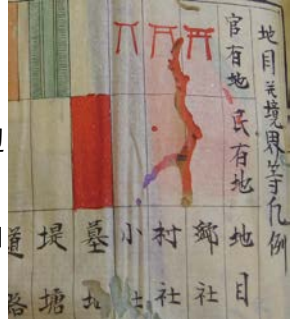 地目並境界等凡例
官有地
民有地
地目
郷社
村社
小社
墓地
堤塘
道路